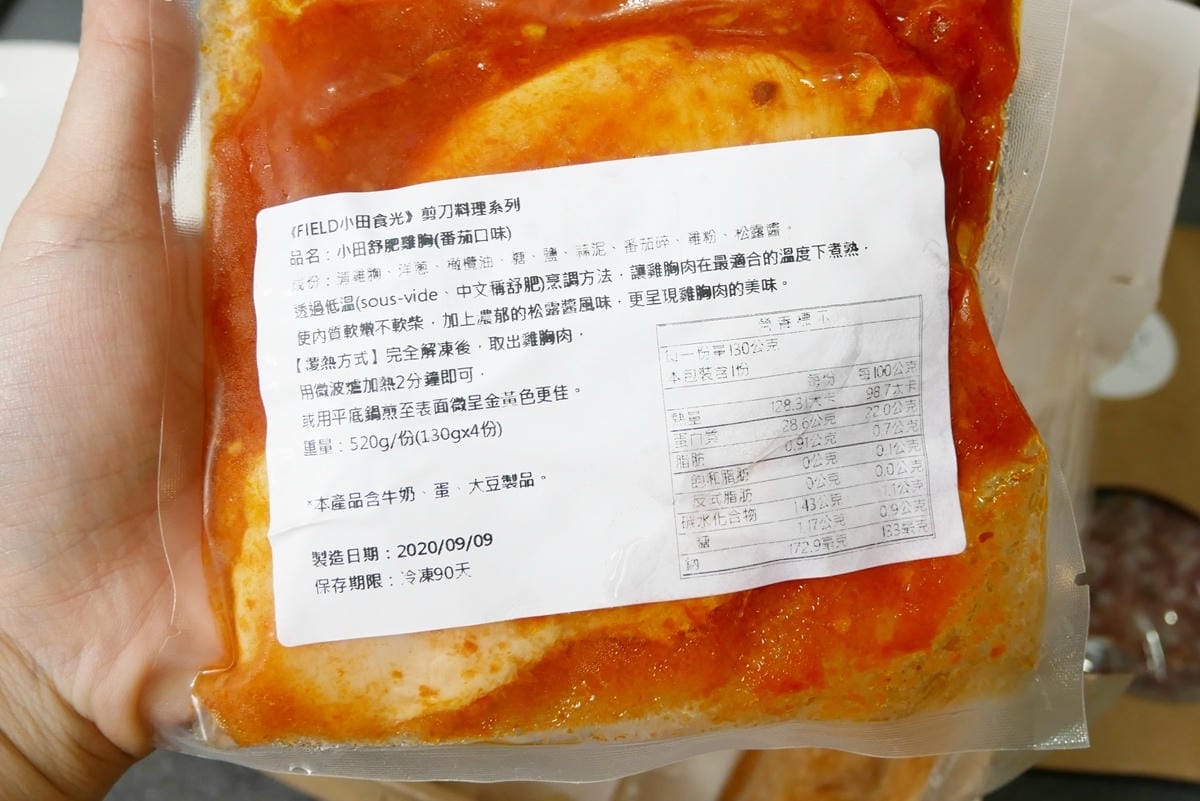 《FIELD小田食光》剪刀料理系列
品名：小田舒肥雞胸(番茄口味)
成份：清雞胸、洋蔥、橄欖油、糖、鹽、蒜泥、番茄碎、雞粉、松露醬。
透過低溫(sous-vide、中文稱舒肥)烹調方法，讓雞胸肉在最適合的溫度下煮熟，
使內質軟嫩不軟柴，加上濃郁的松露醬風味，更呈現雞胸肉的美味。
【覆熱方式】完全解凍後，取出雞胸肉，
用微波爐加熱2分鐘即可，
或用平底鍋煎至表面微呈金黃色更佳。
重量：520g/份(130gx4份)
*本產品含牛奶、蛋、大豆製品。
製造日期：2020/09/09
保存期限：冷凍90天
營養標示
每一份量130公克
本包裝含1份
每份 每100公克
熱量 128.31大卡 98.7大卡
蛋白質 28.6公克 22.0公克
脂肪 0.91公克 0.7公克
飽和脂肪 0公克 0.1公克
反式脂肪 0公克 0.0公克
碳水化合物 1.43公克 1.1公克
糖 1.17公克 0.9公克
鈉 172.9毫克 133毫克